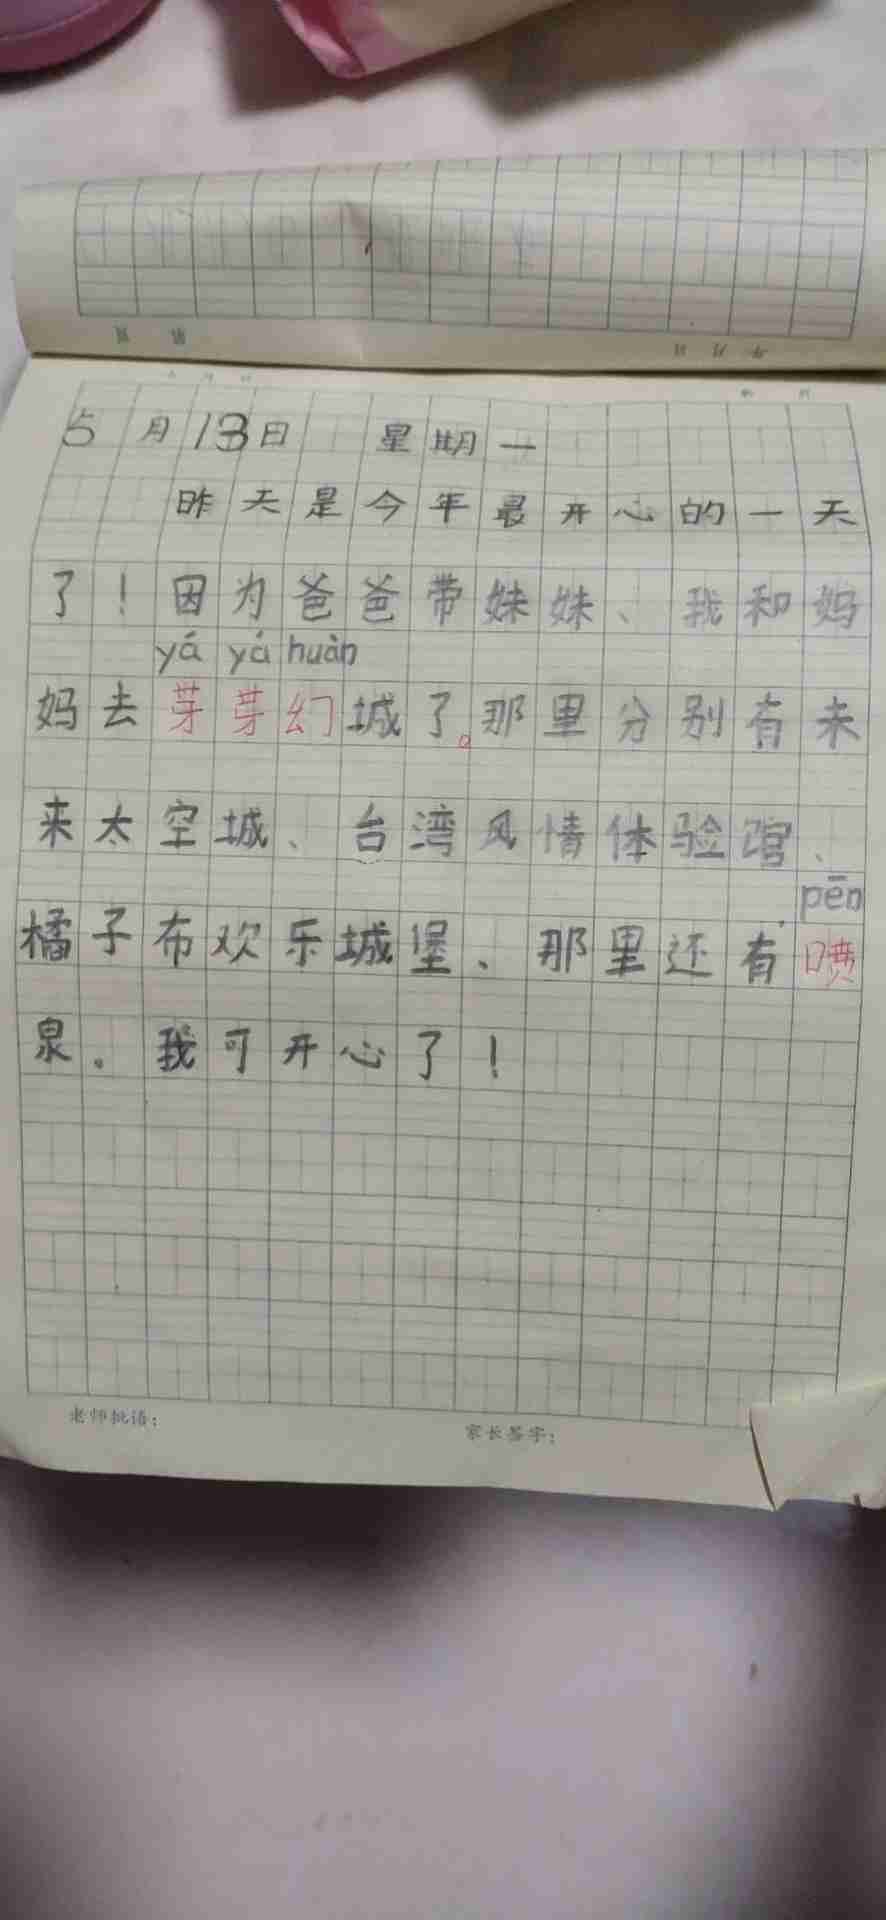 5月13日 星期一
昨天是今年最开心的一天
了！因为爸爸带妹妹、我和妈
yá yá huàn
妈去芽芽幻城了。那里分别有未
来太空城、台湾风情体验馆、
pēn
橘子布欢乐城堡、那里还有喷
泉。我可开心了！
老师批语：
家长签字：